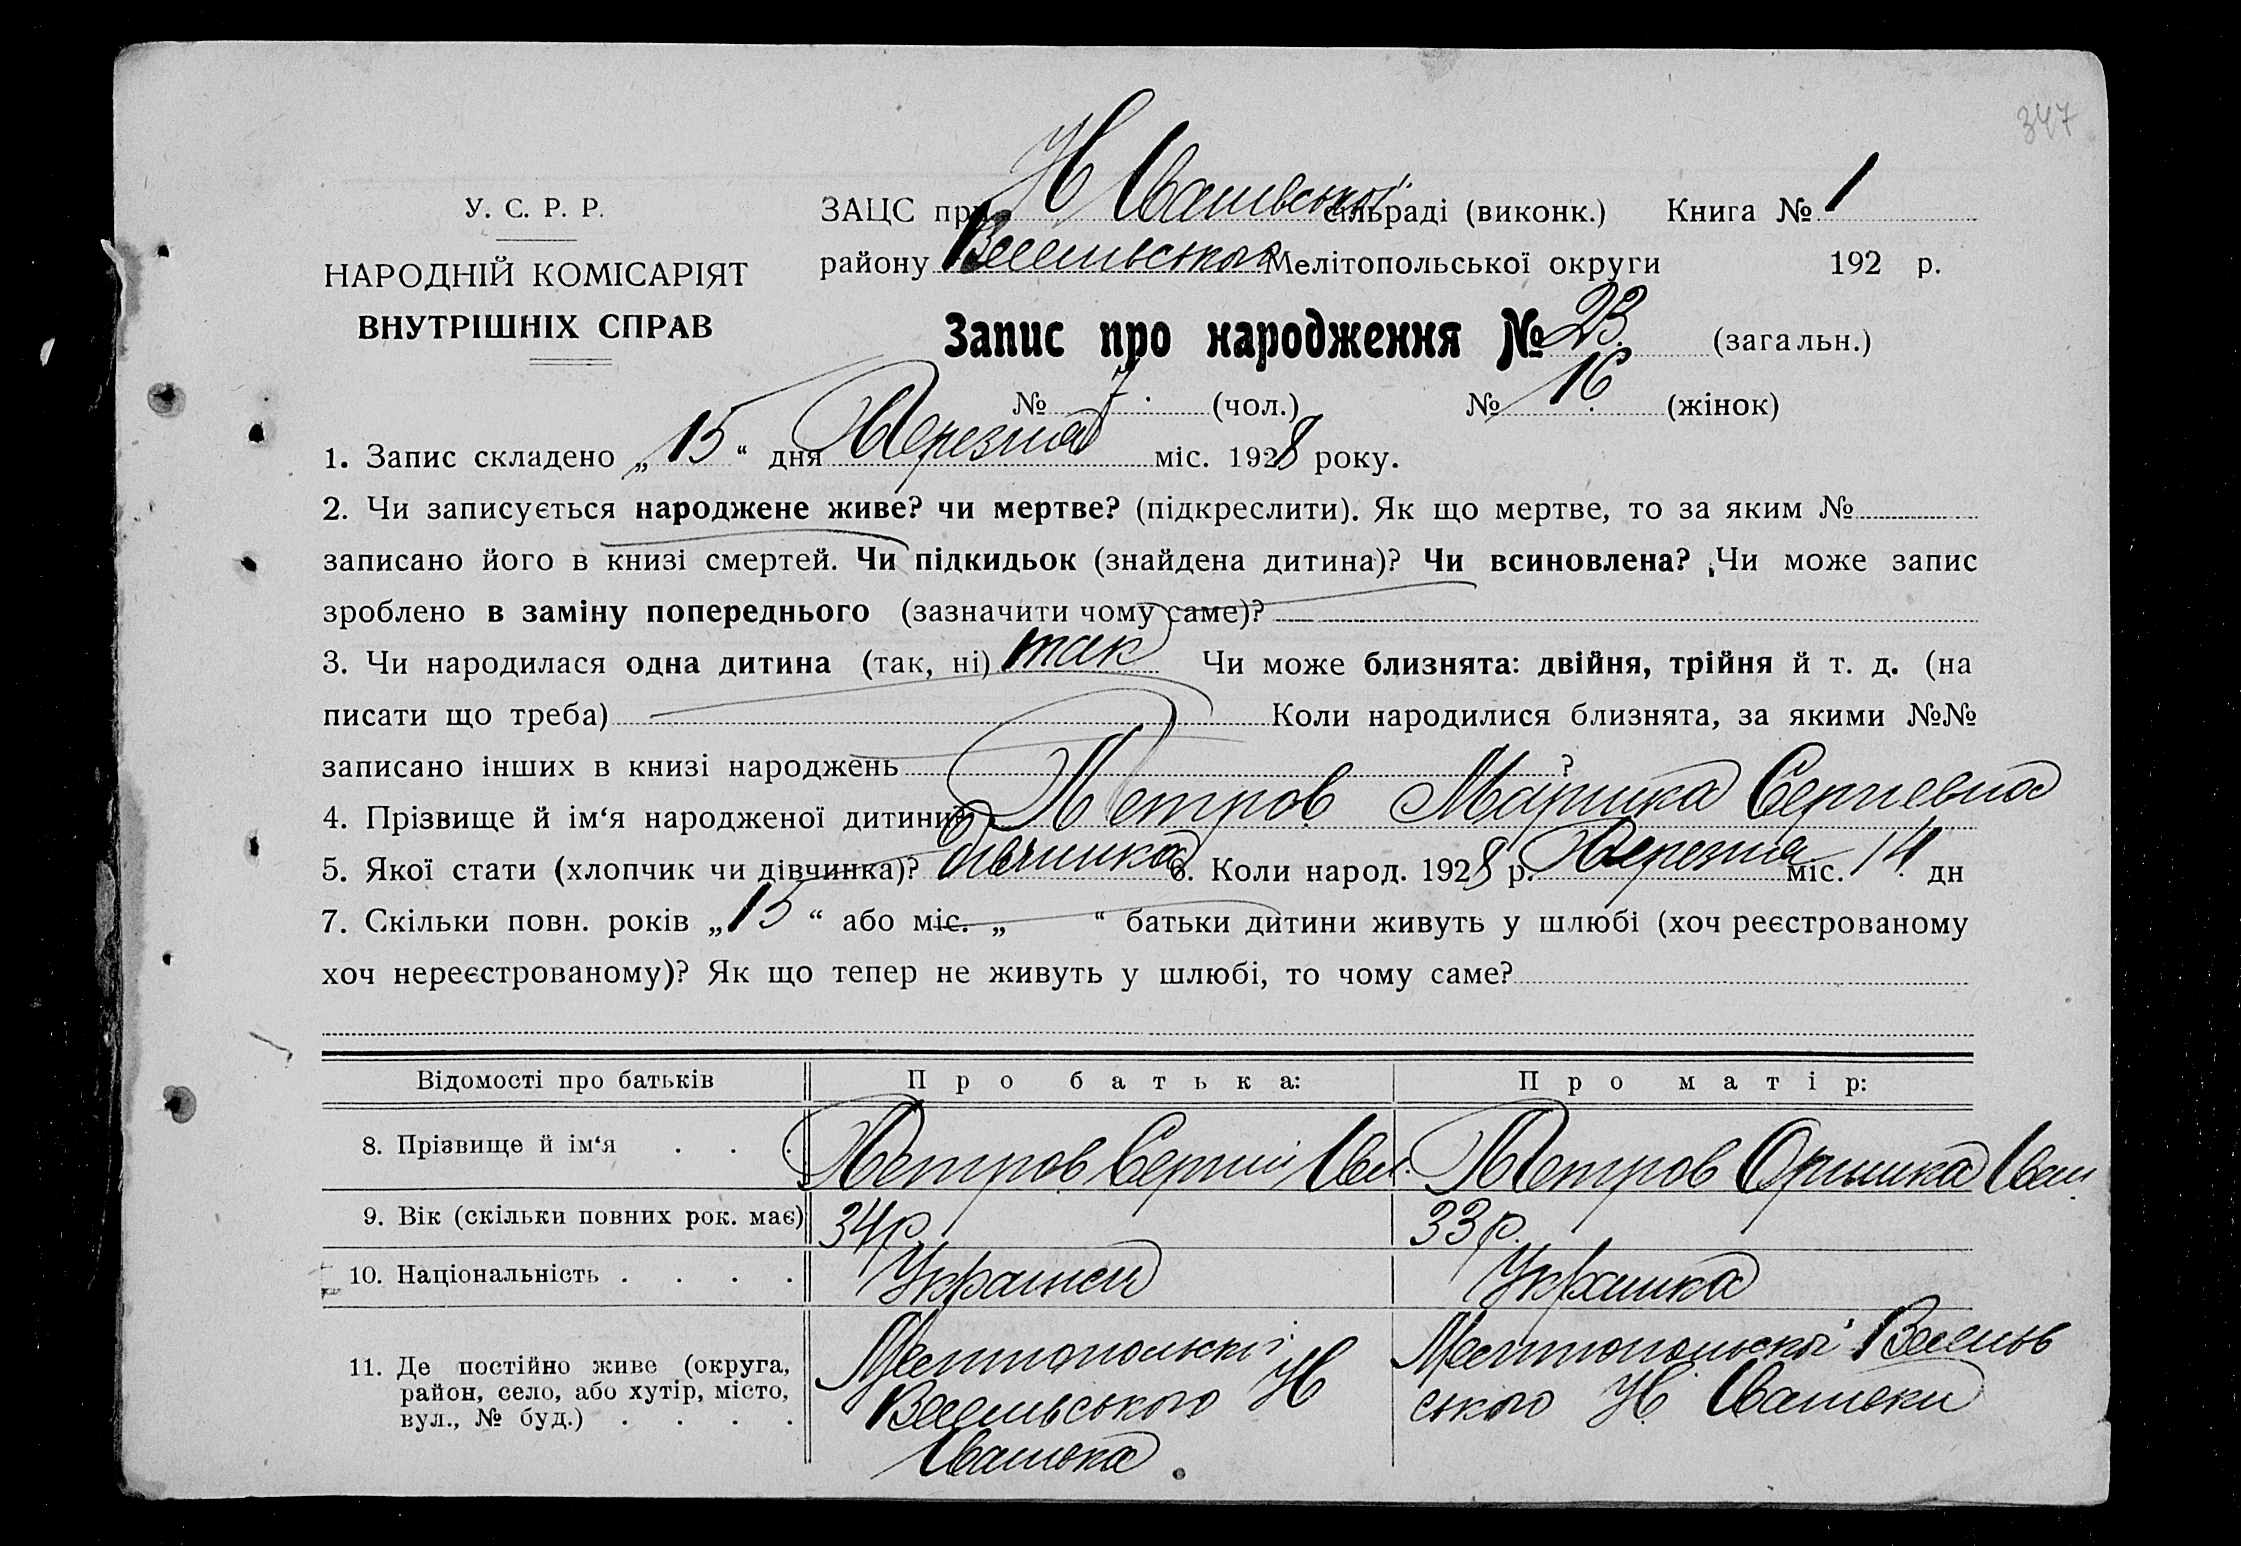 347
У. С. Р. Р.
НАРОДНІЙ КОМІСАРІЯТ
ВНУТРІШНІХ СПРАВ
ЗАЦС при Н Івашевської сільраді (виконк.) Книга № 1
району Веселівського Мелітопольської округи 192 р.
Запис про народження № 23. (загальн.)
№ 7. (чол.) № 16 (жінок)
1. Запис складено „15“ дня Березня міс. 1928 року.
2. Чи записується народжене живе? чи мертве? (підкреслити). Як що мертве, то за яким №
записано його в книзі смертей. Чи підкидьок (знайдена дитина)? Чи всиновлена? Чи може запис
зроблено в заміну попереднього (зазначити чому саме)?
3. Чи народилася одна дитина (так, ні) так Чи може близнята: двійня, трійня й т. д. (на
писати що треба) Коли народилися близнята, за якими №№
записано інших в книзі народжень ?
4. Прізвище й ім‘я народженої дитини Петров Маришка Сергиевна
5. Якої стати (хлопчик чи дівчинка)? дівчинка 6. Коли народ. 1928 р. Березня міс. 14 дн
7. Скільки повн. років „15“ або міс. „ “ батьки дитини живуть у шлюбі (хоч реєстрованому
хоч нереєстрованому)? Як що тепер не живуть у шлюбі, то чому саме?
Відомості про батьків Про батька: Про матір:
8. Прізвище й ім‘я . . . Петров Сергий Іван Петров Оришка Іван
9. Вік (скільки повних рок. має) 34 р. 33 р.
10. Національність . . . . Украинец Украинка
11. Де постійно живе (округа, район, село, або хутір, місто, вул., № буд.) . . . .
Мелітопольскої
Веселівського Н
Івашека.
Мелітопольскої Веселів
ського Н. Івашеки